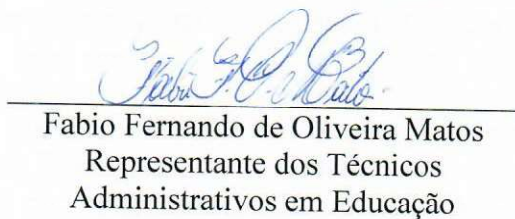 Fabio Fernando de Oliveira Matos
Representante dos Técnicos
Administrativos em Educação